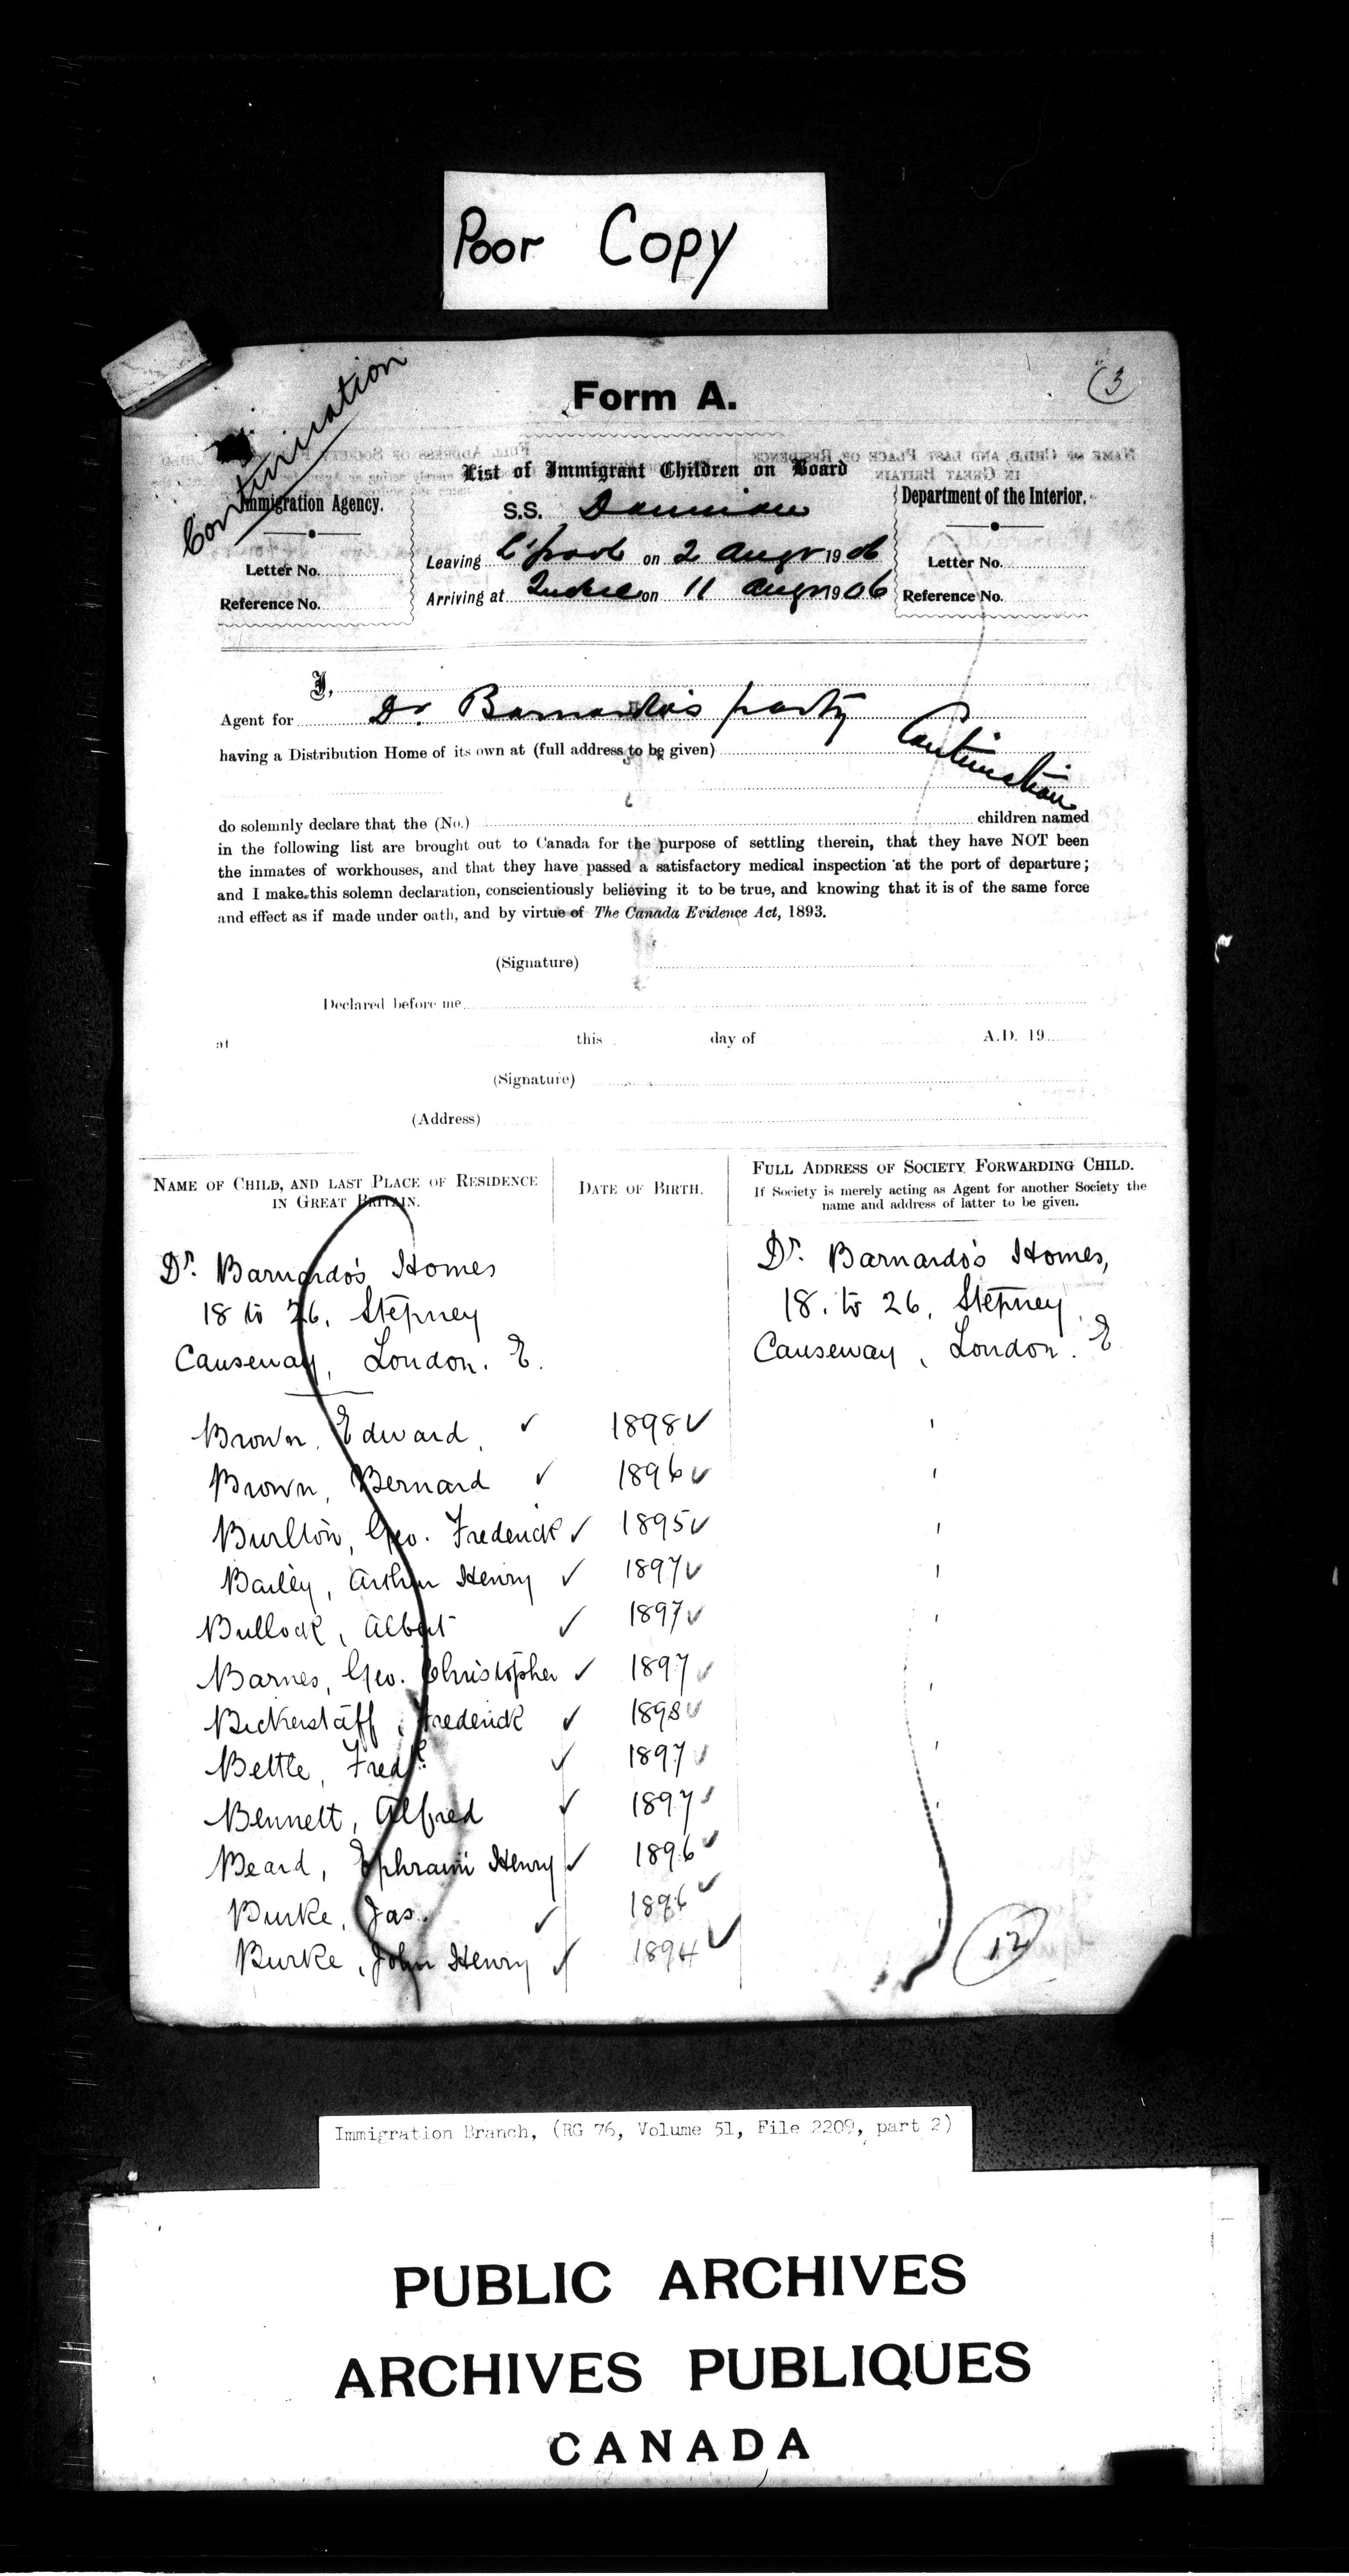 Poor Copy
3
Form A.
Continuation
List of Immigrant Children on Board
Immigration Agency.
Department of the Interior.
S.S.
Leaving L'pool on 2 Augt 1906
Letter No.
Letter No.
Arriving at Quebec on 11 Augt 1906
Reference No.
Reference No.
I,
Agent for Dr. Barnardo's party
Continuation
having a Distribution Home of its own at (full address to be given)
do solemnly declare that the (No.) children named
in the following list are brought out to Canada for the purpose of settling therein, that they have NOT been
the inmates of workhouses, and that they have passed a satisfactory medical inspection at the port of departure;
and I make this solemn declaration, conscientiously believing it to be true, and knowing that it is of the same force
and effect as if made under oath, and by virtue of The Canada Evidence Act, 1893.
(Signature)
Declared before me
at this day of A.D. 19
(Signature)
(Address)
NAME OF CHILD, AND LAST PLACE OF RESIDENCE
IN GREAT BRITAIN.
DATE OF BIRTH.
FULL ADDRESS OF SOCIETY FORWARDING CHILD.
If Society is merely acting as Agent for another Society the
name and address of latter to be given.
Dr. Barnardo's Homes
18 to 26, Stepney
Causeway, London. E.
Dr. Barnardo's Homes,
18. to 26, Stepney
Causeway, London. E
Brown, Edward, ✓ 1898 ✓
Brown, Bernard ✓ 1896 ✓
Burlton, Geo. Frederick ✓ 1895 ✓
Bailey, Arthur Henry ✓ 1897 ✓
Bullock, Albert ✓ 1897 ✓
Barnes, Geo. Christopher ✓ 1897 ✓
Bickerstaff, Frederick ✓ 1898 ✓
Bettle, Fredk. ✓ 1897 ✓
Bennett, Alfred ✓ 1897 ✓
Beard, Ephraim Henry ✓ 1896 ✓
Burke, Jas. ✓ 1896 ✓
Burke, John Henry ✓ 1894 ✓
12
Immigration Branch, (RG 76, Volume 51, File 2209, part 2)
PUBLIC ARCHIVES
ARCHIVES PUBLIQUES
CANADA